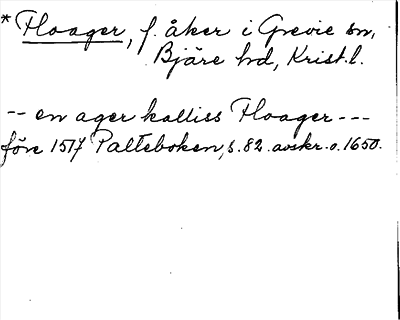 * Floager, f. åker i Grevie sn,
Bjäre hd, Krist.l.
-- en ager kalliss Floager ---
före 1517 Palteboken, s. 82. avskr. o. 1650.